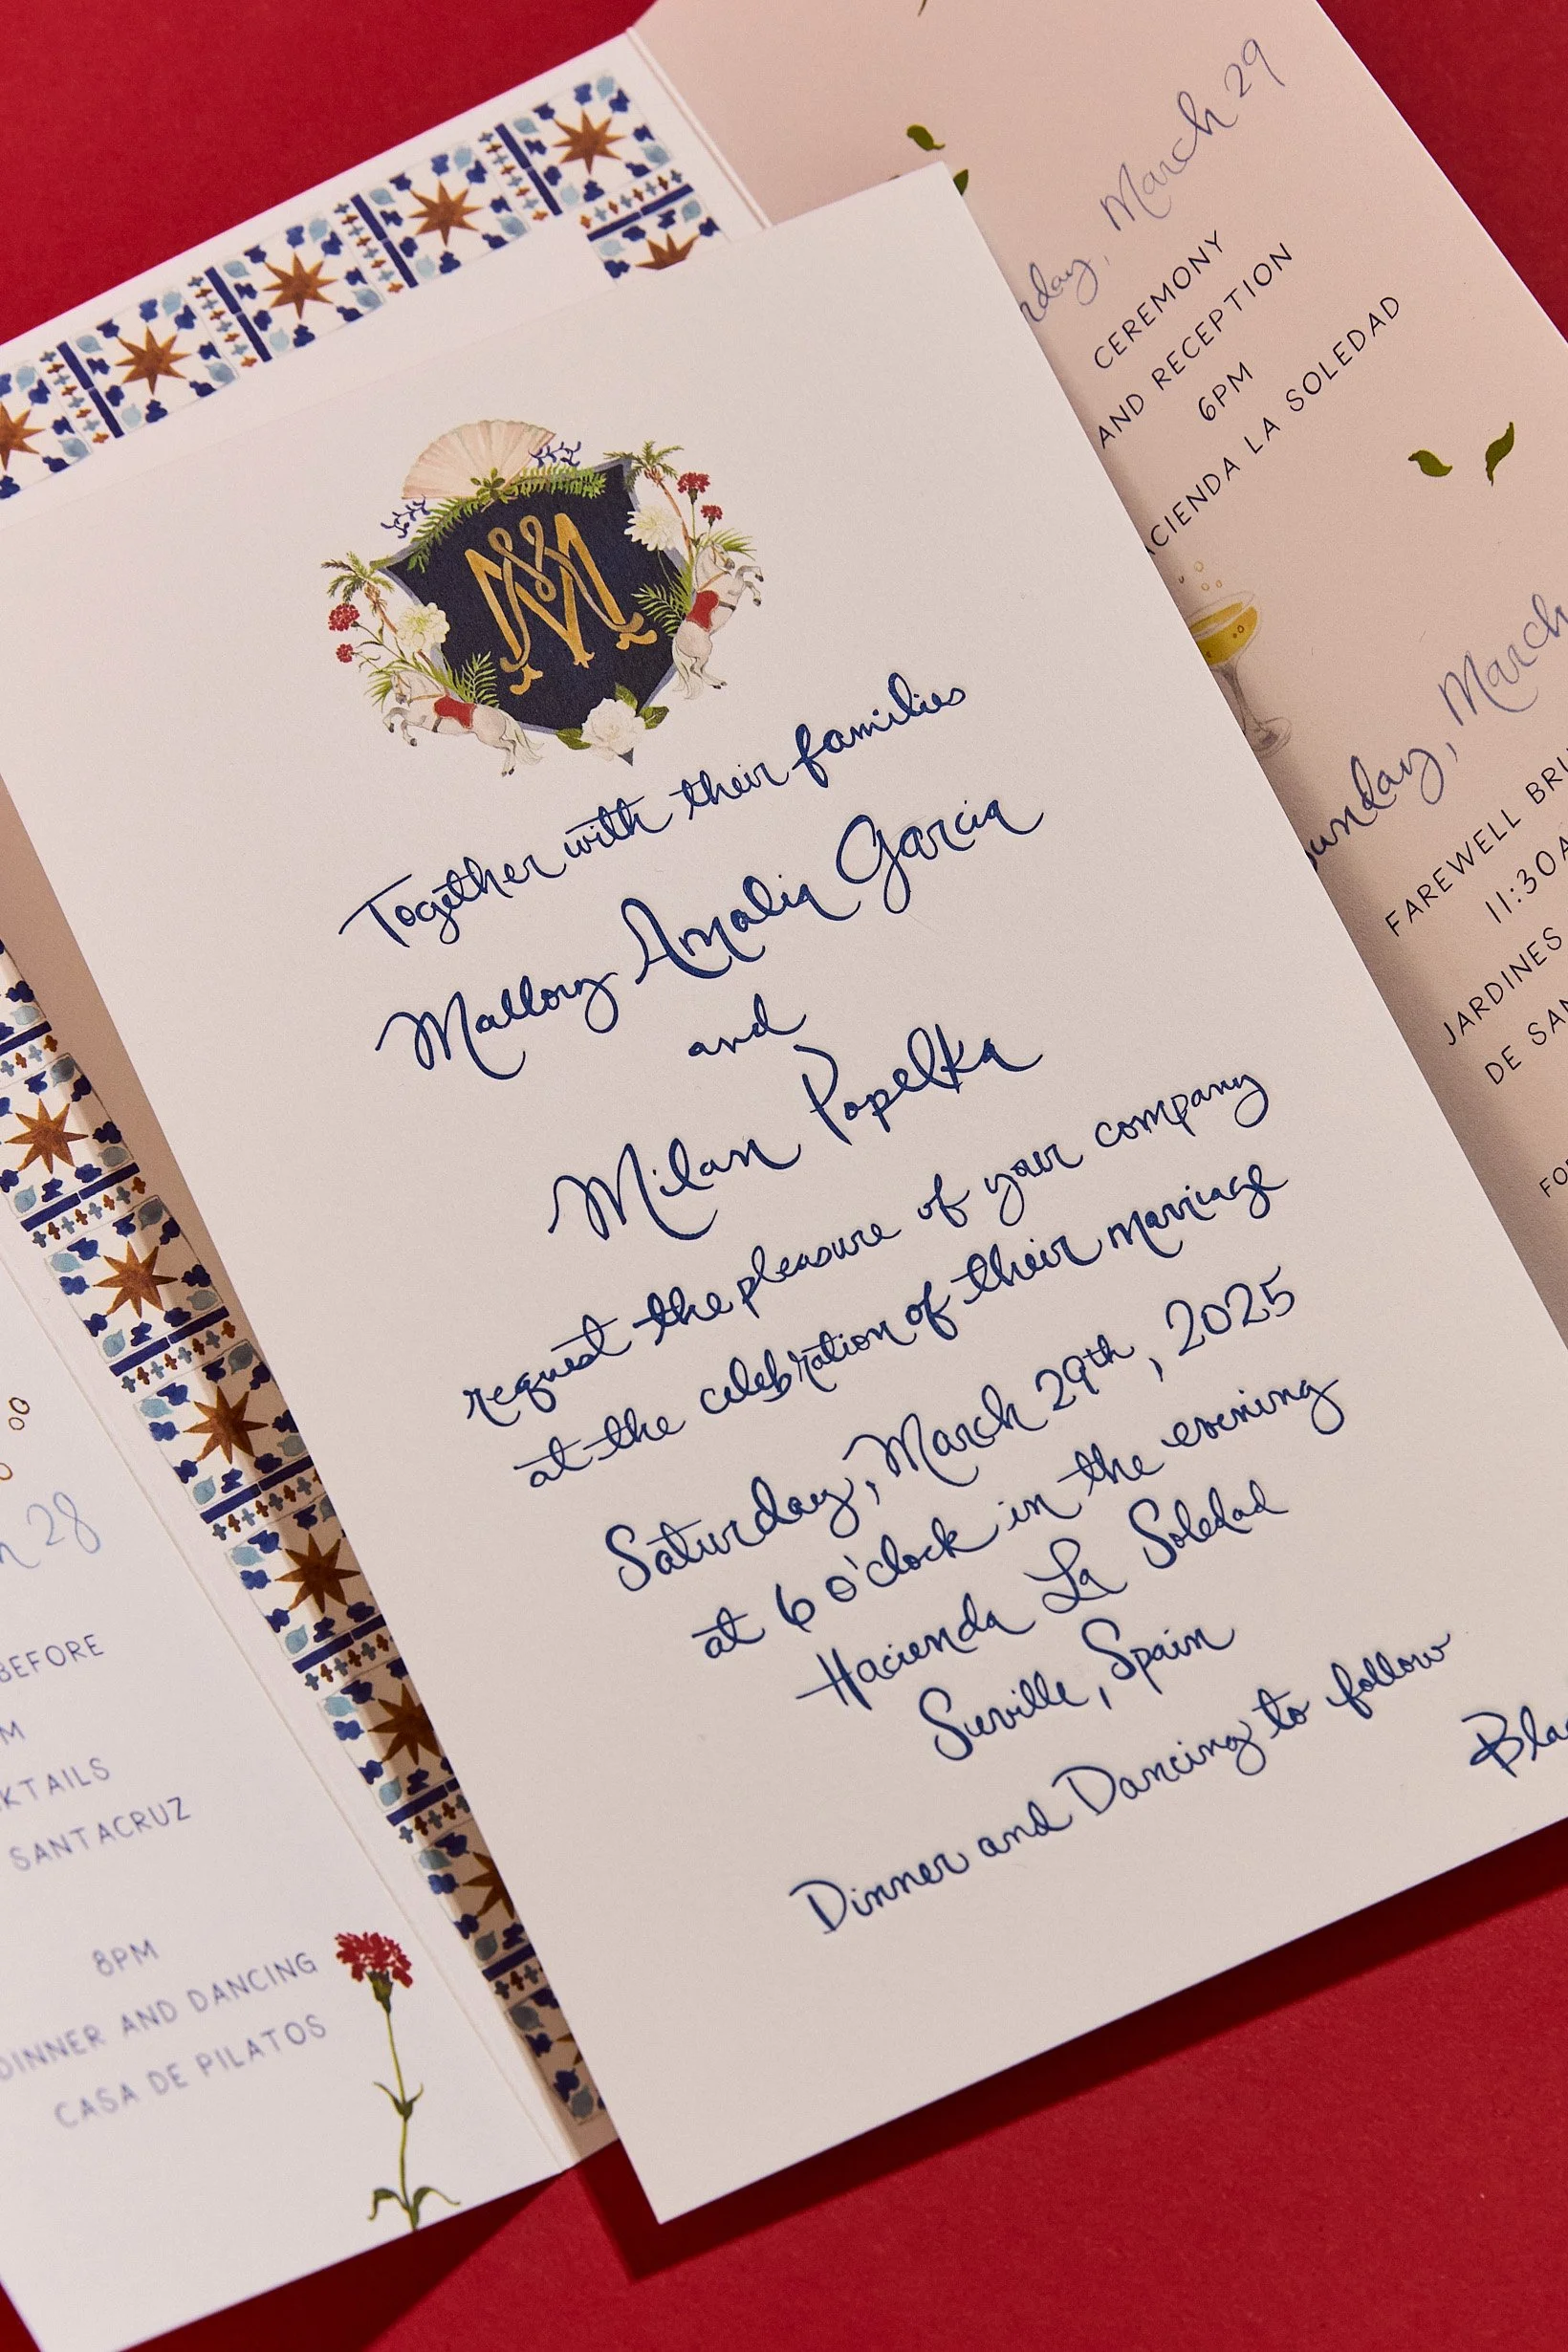 MM
Together with their families
Mallory Amalia Garcia
and
Milan Popelka
request the pleasure of your company
at the celebration of their marriage
Saturday, March 29th, 2025
at 6 o'clock in the evening
Hacienda La Soledad
Seville, Spain
Dinner and Dancing to follow
March 29
CEREMONY
AND RECEPTION
6PM
LA SOLEDAD
Sunday, March
FAREWELL
11:30
JARDINES
DE
28
BEFORE
SANTACRUZ
8PM
DINNER AND DANCING
CASA DE PILATOS